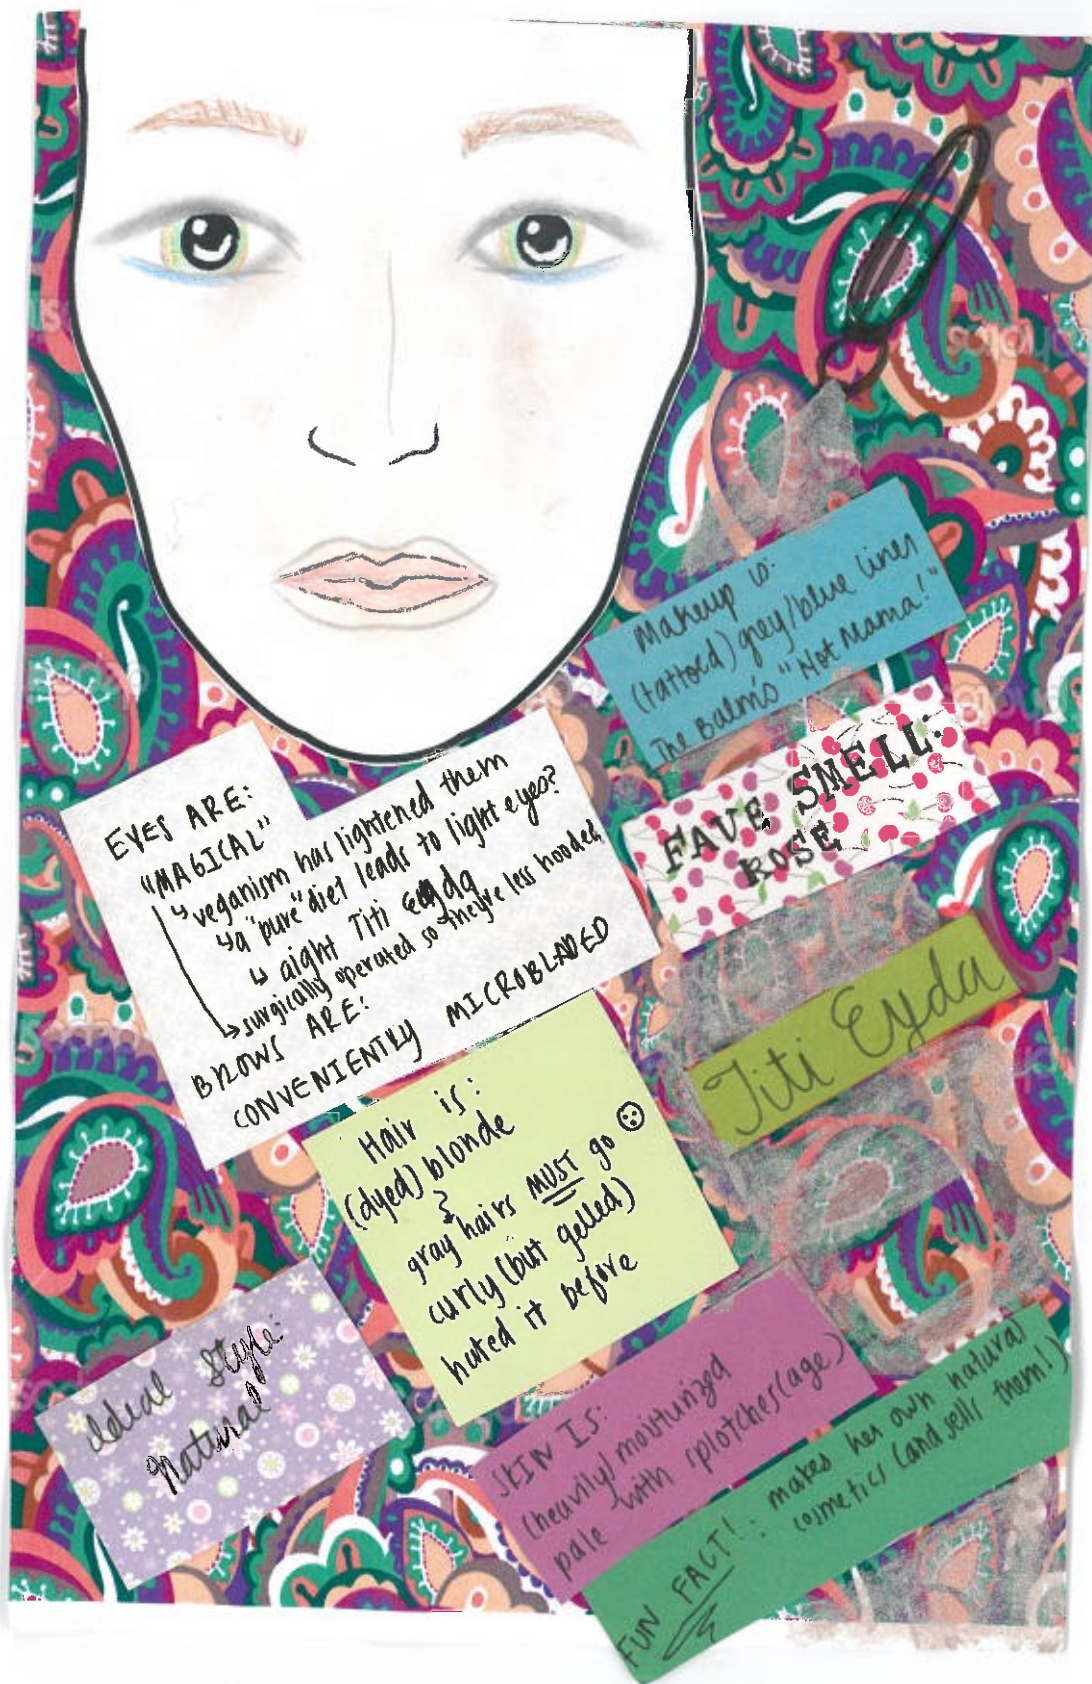 Makeup is:
(tattoed) grey/blue liner
The Balm's "Not Mama!"
FAVE SMELL:
ROSE
Titi Eyda
EYES ARE:
"MAGICAL"
↳ veganism has lightened them
↳ a "pure" diet leads to light eyes?
↳ aight Titi Eyda
→ surgically operated so they're less hooded
BROWS ARE:
CONVENIENTLY MICROBLADED
Hair is:
(dyed) blonde
gray hairs MUST go
curly (but gelled)
hated it before
Ideal Style:
Natural
SKIN IS:
(heavily) moisturized
pale with splotches (age)
FUN FACT!: makes her own natural
cosmetics (and sells them!)